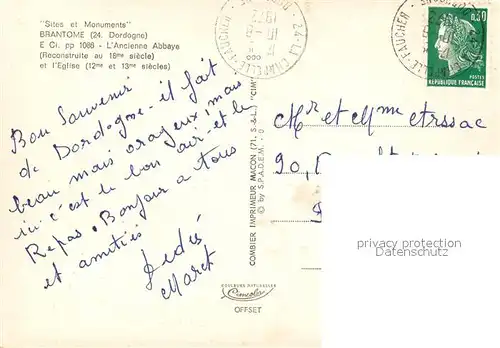 "Sites et Monuments"
BRANTOME (24. Dordogne)
E Ci. pp 1088 - L'Ancienne Abbaye
(Reconstruite au 18me siècle)
et l'Eglise (12me et 13me siècles)
Bon Souvenir
de Dordogne - il fait
beau mais orageux, mais
ici c'est le bon air - et le
Repos. Bonjour a tous
et amitiés
Maret
COMBIER IMPRIMEUR MACON (71. S.-&-L.) "CIM"
© by S.P.A.D.E.M.
COULEURS NATURELLES
Cimcolor
OFFSET
24 LA CHAPELLE-FAUCHER
0,30
POSTES
REPUBLIQUE FRANÇAISE
Mr et Mme
90,
privacy protection
Datenschutz